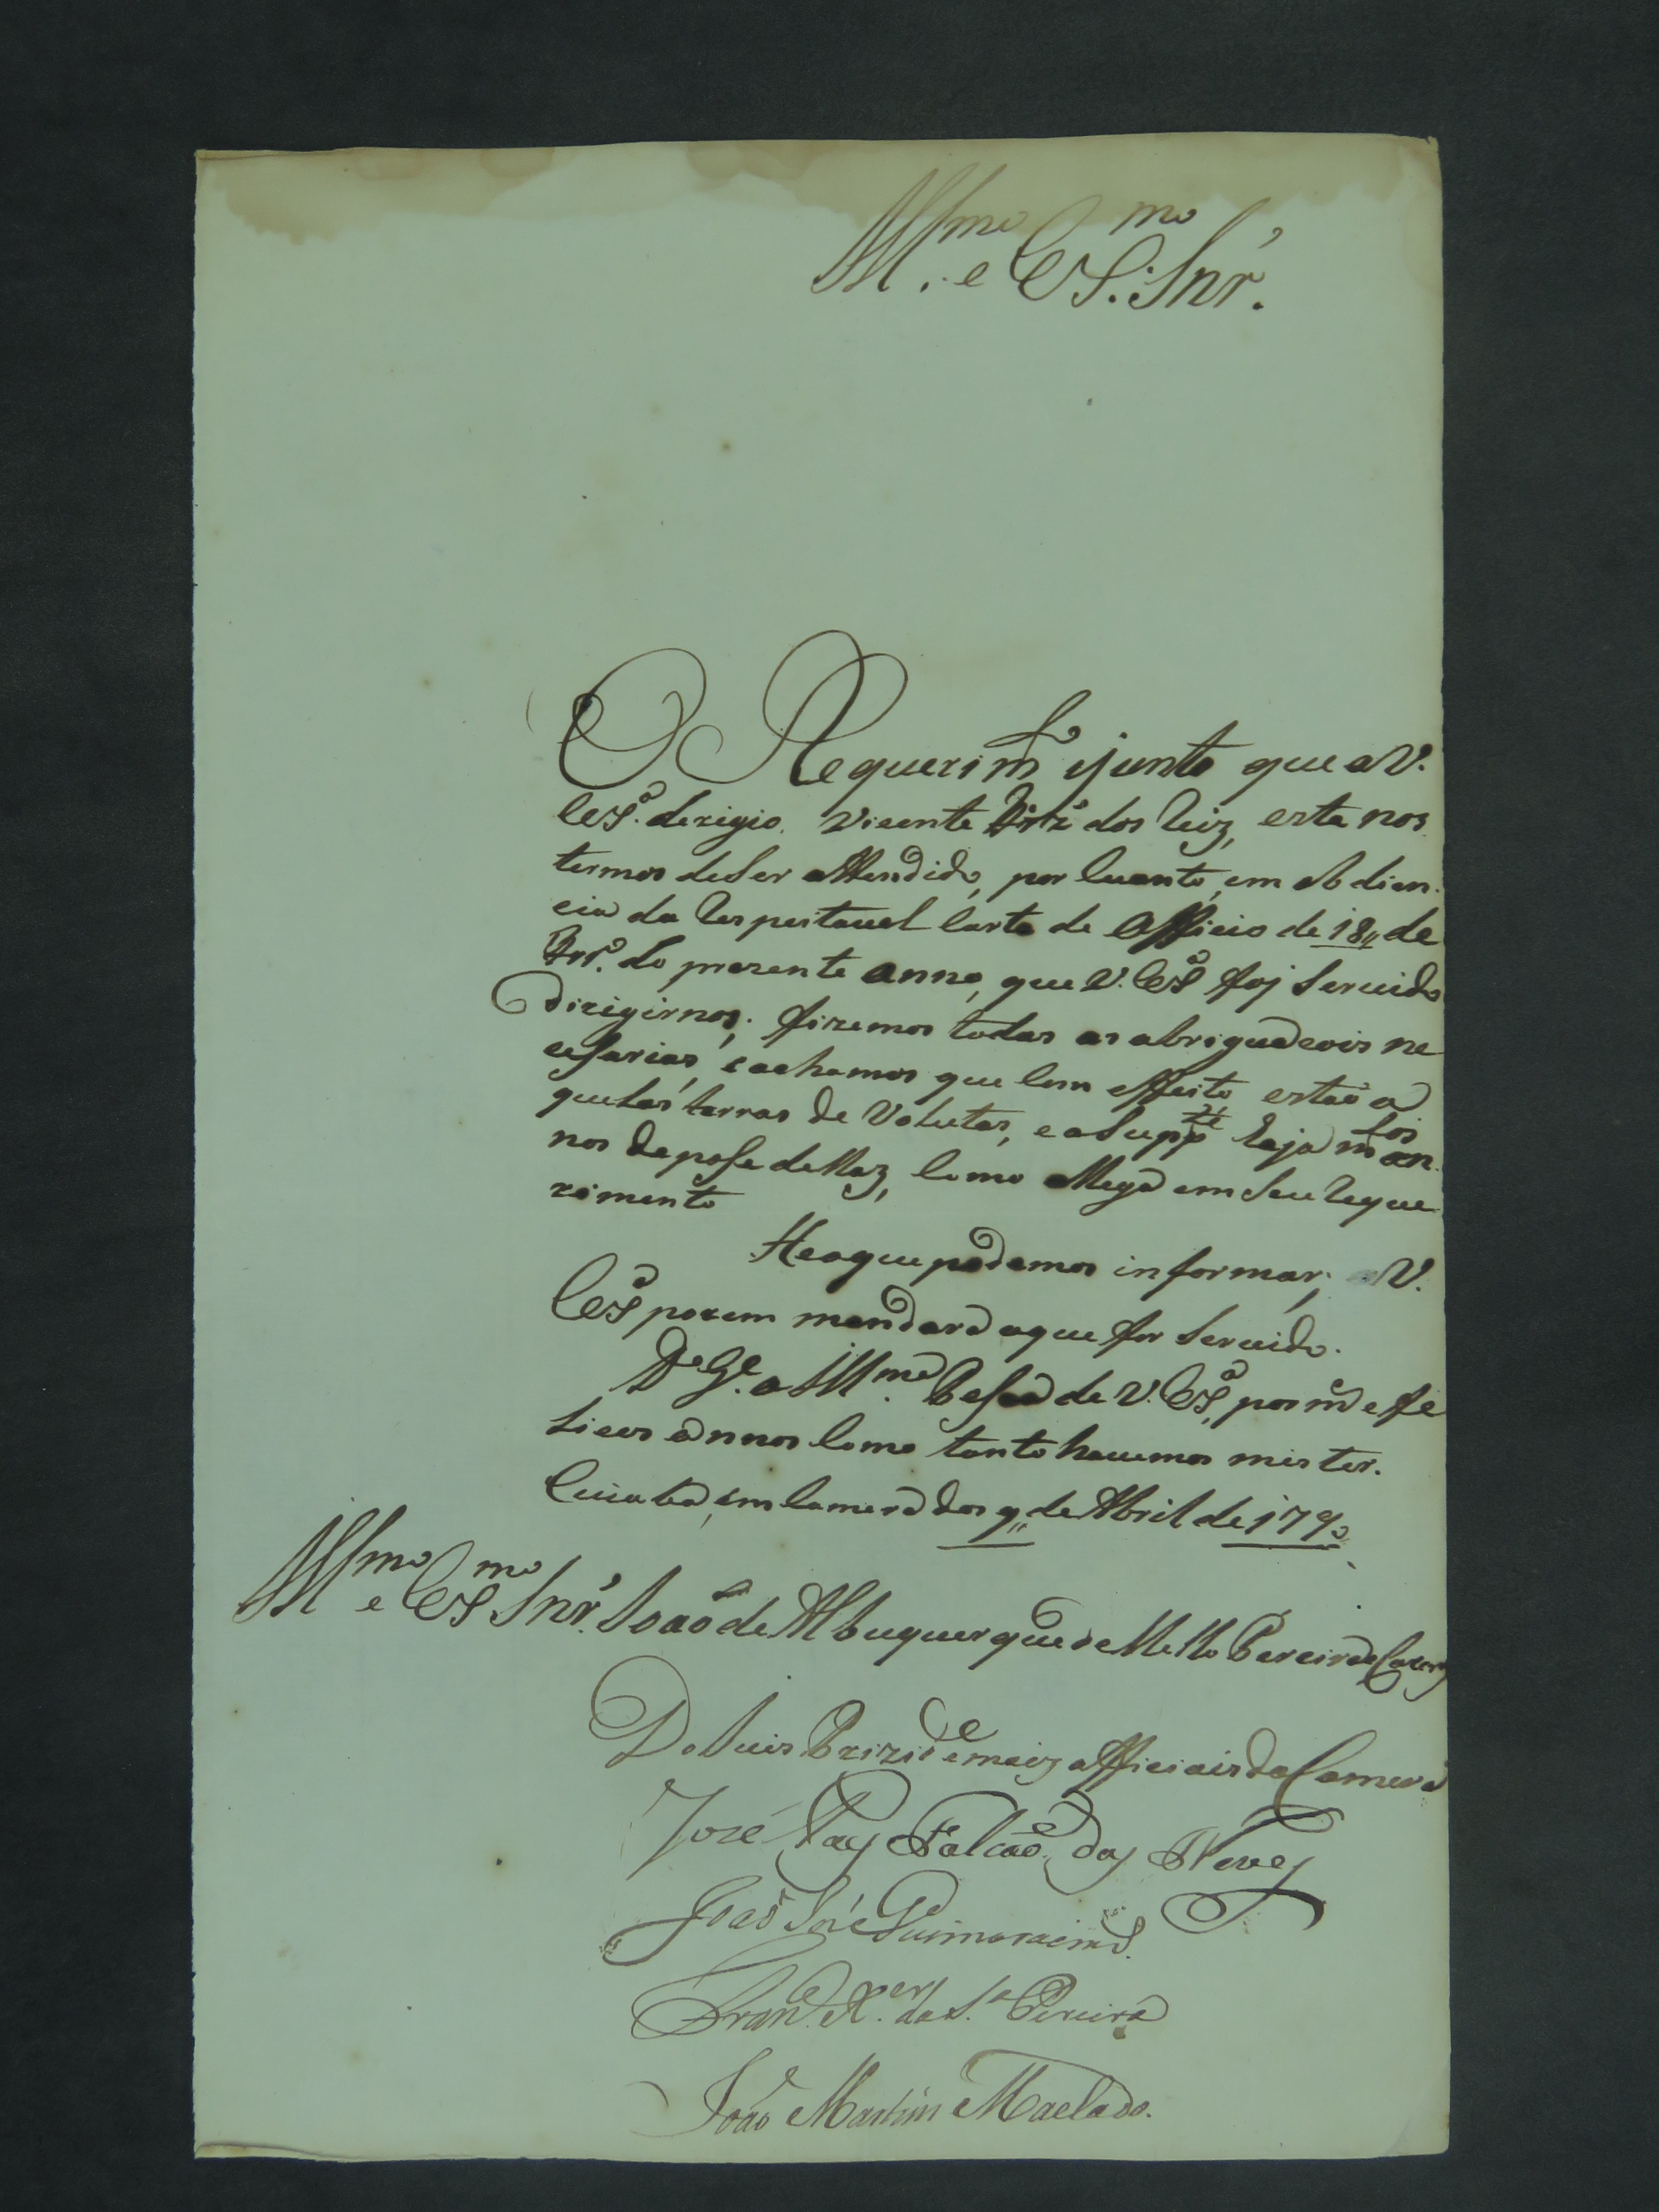 Illmo. e Exmo. Snr.
O Requerimto. junto que a V.
Exa. derigio Vicente dos Reiz, esta nos
termos de Ser attendido, por quanto, em obdien-
cia da Respeitavel Carta de Officio de 18,, de
do prezente anno, que V. Exa. foj Servido
dirigirnos; fizemos todas as abriguacois ne
cesarias, e achamos que Com effeito estaõ a
quelas terras de Volutas, e a Suppte. Laja mtos. an-
nos de pose dellaz, Como allega em Seu Reque-
rimento
He o que podemos informar; a V.
Exa. porem mandara o que for Servido.
Ds. Ge. a Illma. Pesoa de V. Exa. por ms. e fe
Lices annos Como tanto havemos mister.
Cuiaba, em Camera dos 9,, de Abril de 1790
Illmo. e Exmo. Snr. Joaõ de Albuquerque de Mello Pereira e Caceres
Do Juis Prezide. e maiz officiais da Camera
José Paes Falcaõ das Neves
Joaõ José Guimaraens.
Franco. Xer. da Sa. Pereira
Joaõ Martins Machado.